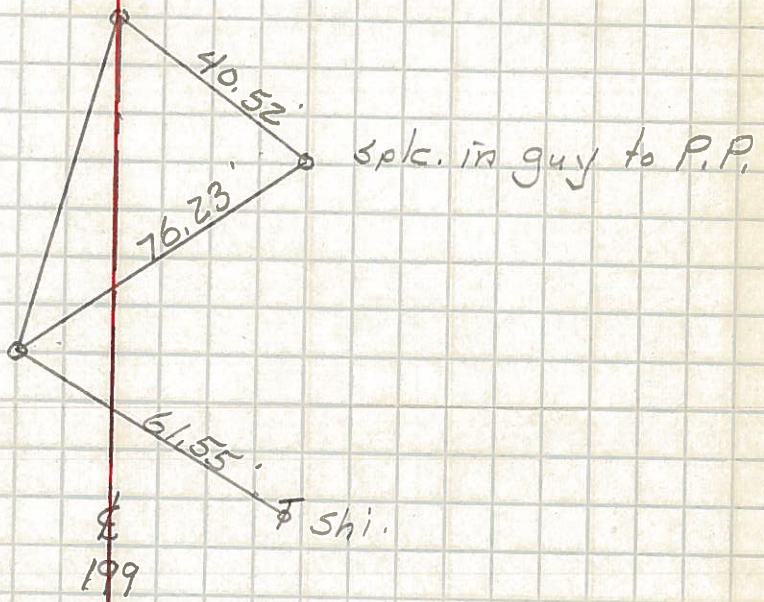 40.52'
spk. in guy to P.P.
76.23'
61.55'
shi.
℄
199